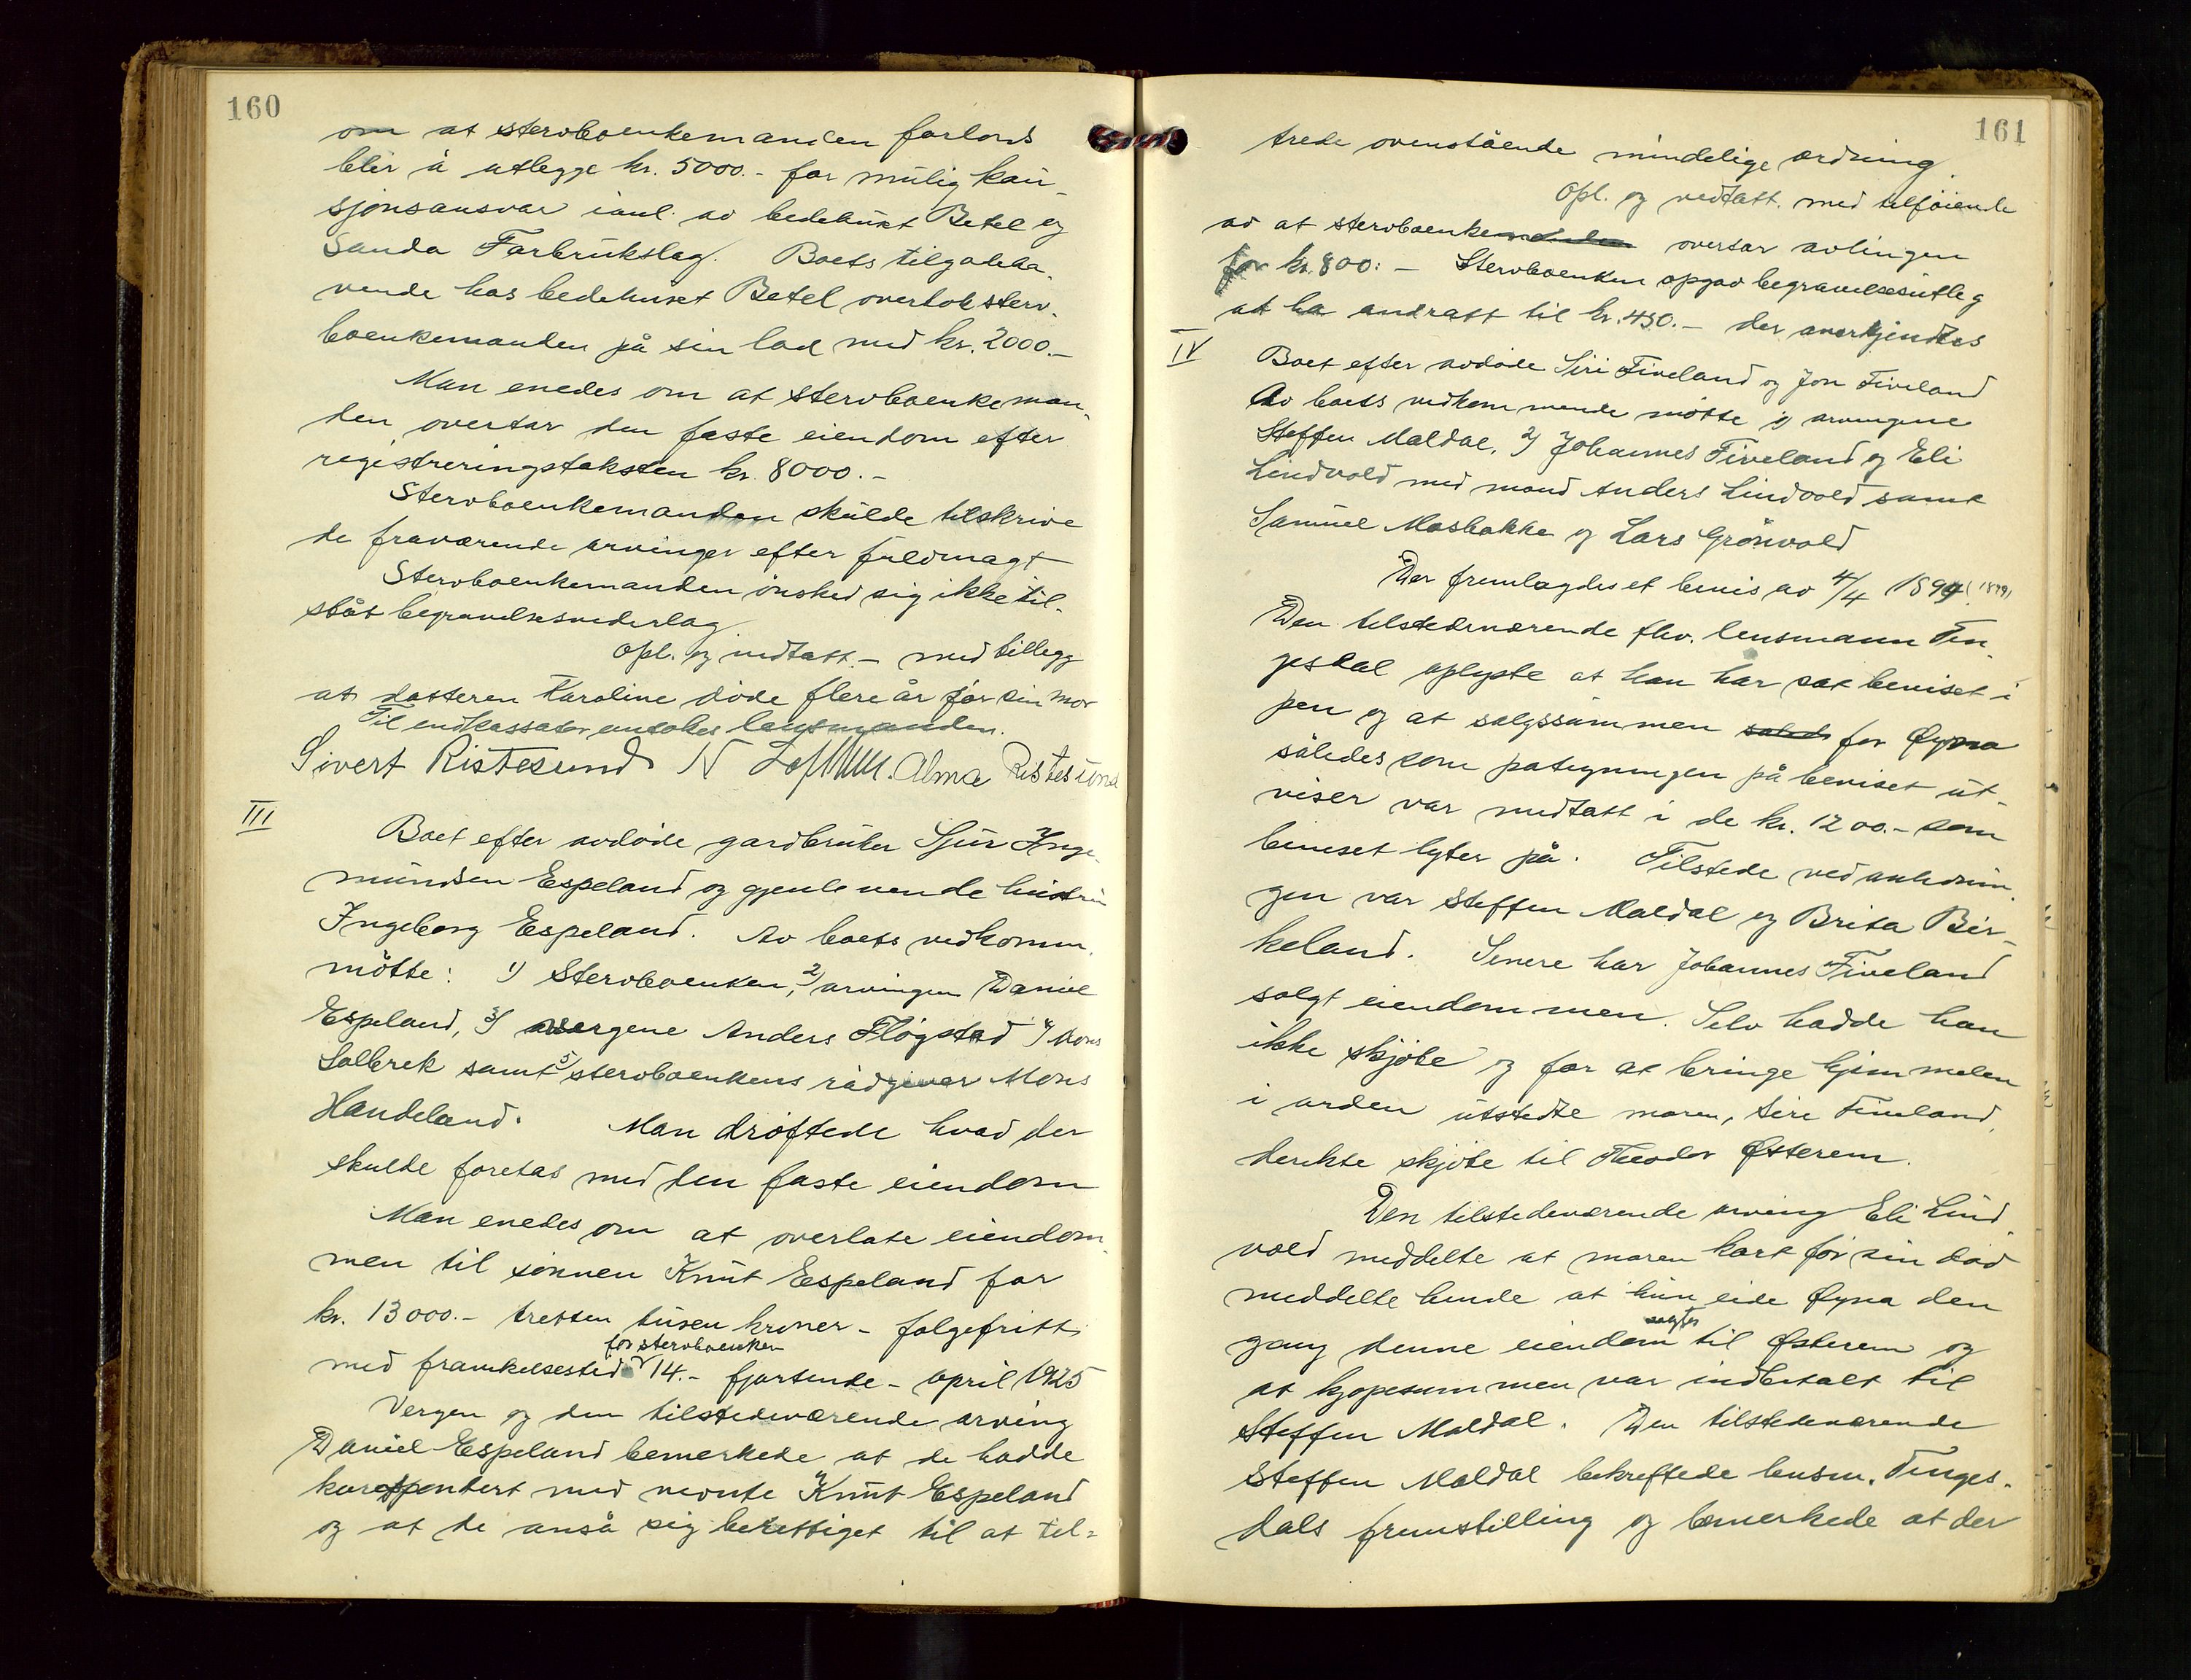 160
om at stervboenkemanden forlods
blir å utlegge kr. 5000.- for mulig kau-
sjonsansvar ianl. av bedehuset Betel og
Sanda Forbrukslag. Boets tilgodeha-
vende hos bedehuset Betel overtok sterv-
boenkemanden på sin lod med kr. 2000.-
Man enedes om at stervboenkeman-
den overtar den faste eiendom efter
registreringstaksten kr. 8000.-
Stervboenkemanden skulde tilskrive
de fraværende arvinger efter fuldmagt
Stervboenkemanden ønsked sig ikke til-
stået begravelsesvederlag
Opl. og vedtatt. - med tillegg
at datteren Karoline døde flere år før sin mor
Til endkassator antokes lensmanden.
Sivert Ristesund N Alma Ristesund
III
Boet efter avdøde gardbruker Sjur Inge-
mundsen Espeland og gjenlevende hustru
Ingeborg Espeland. Av boets vedkomm.
møtte: 1) Stervboenken, 2) arvingen Daniel
Espeland, 3) vergene Anders Fløgstad 4) Mons
Solbrek samt 5) stervboenkens rådgiver Mons
Handeland. Man drøftede hvad der
skulde foretas med den faste eiendom
Man enedes om at overlate eiendom-
men til sønnen Knut Espeland for
kr. 13000.- tretten tusen kroner - følgefritt
for stervboenken
med fravikelsestid 14.- fjortende - april 1925
Vergen og den tilstedeværende arving
Daniel Espeland bemerkede at de hadde
korespondert med nevnte Knut Espeland
og at de anså sig berettiget til at til-
161
trede ovenstående mindelige ordning.
Opl. og vedtatt. med tilføiende
av at stervboenkemanden overtar avlingen
for kr. 800:- Stervboenken opgav begravelsesutleg
at ha andratt til kr. 450.- der anerkjendtes
IV
Boet efter avdøde Siri Fiveland og Jon Fiveland
Av boets vedkommende møtte 1) arvingene
Steffen Maldal, 2) Johannes Fiveland og Eli
Lindvold med mand Anders Lindvold samt
Samuel Mosbakka og Lars Grønvold
Der fremlagdes et bevis av 4/4 1899 (1899)
Den tilstedeværende fhv. lensmann Tin-
gesdal oplyste at han har sat beviset i
pen og at salgssummen solgt for Øyna
således som pategningen på beviset ut-
viser var medtatt i de kr. 1200.- som
beviset lyter på. Tilstede ved anlednin-
gen var Steffen Maldal og Brita Bir-
keland. Senere har Johannes Fiveland
solgt eiendommen. Selv hadde han
ikke skjøte og for at bringe hjemmelen
i orden utstedte moren, Siri Fiveland,
derekte skjøte til Theodor Østerem.
Den tilstedeværende arving Eli Lind-
vold meddelte at moren kort før sin død
meddelte hende at hun eide Øyna den
solgtes
gang denne eiendom til Østerem og
at kjøpesummen var indbetalt til
Steffen Maldal. Den tilstedeværende
Steffen Maldal bekreftede lensm. Tinges-
dals fremstilling og bemerkede at der